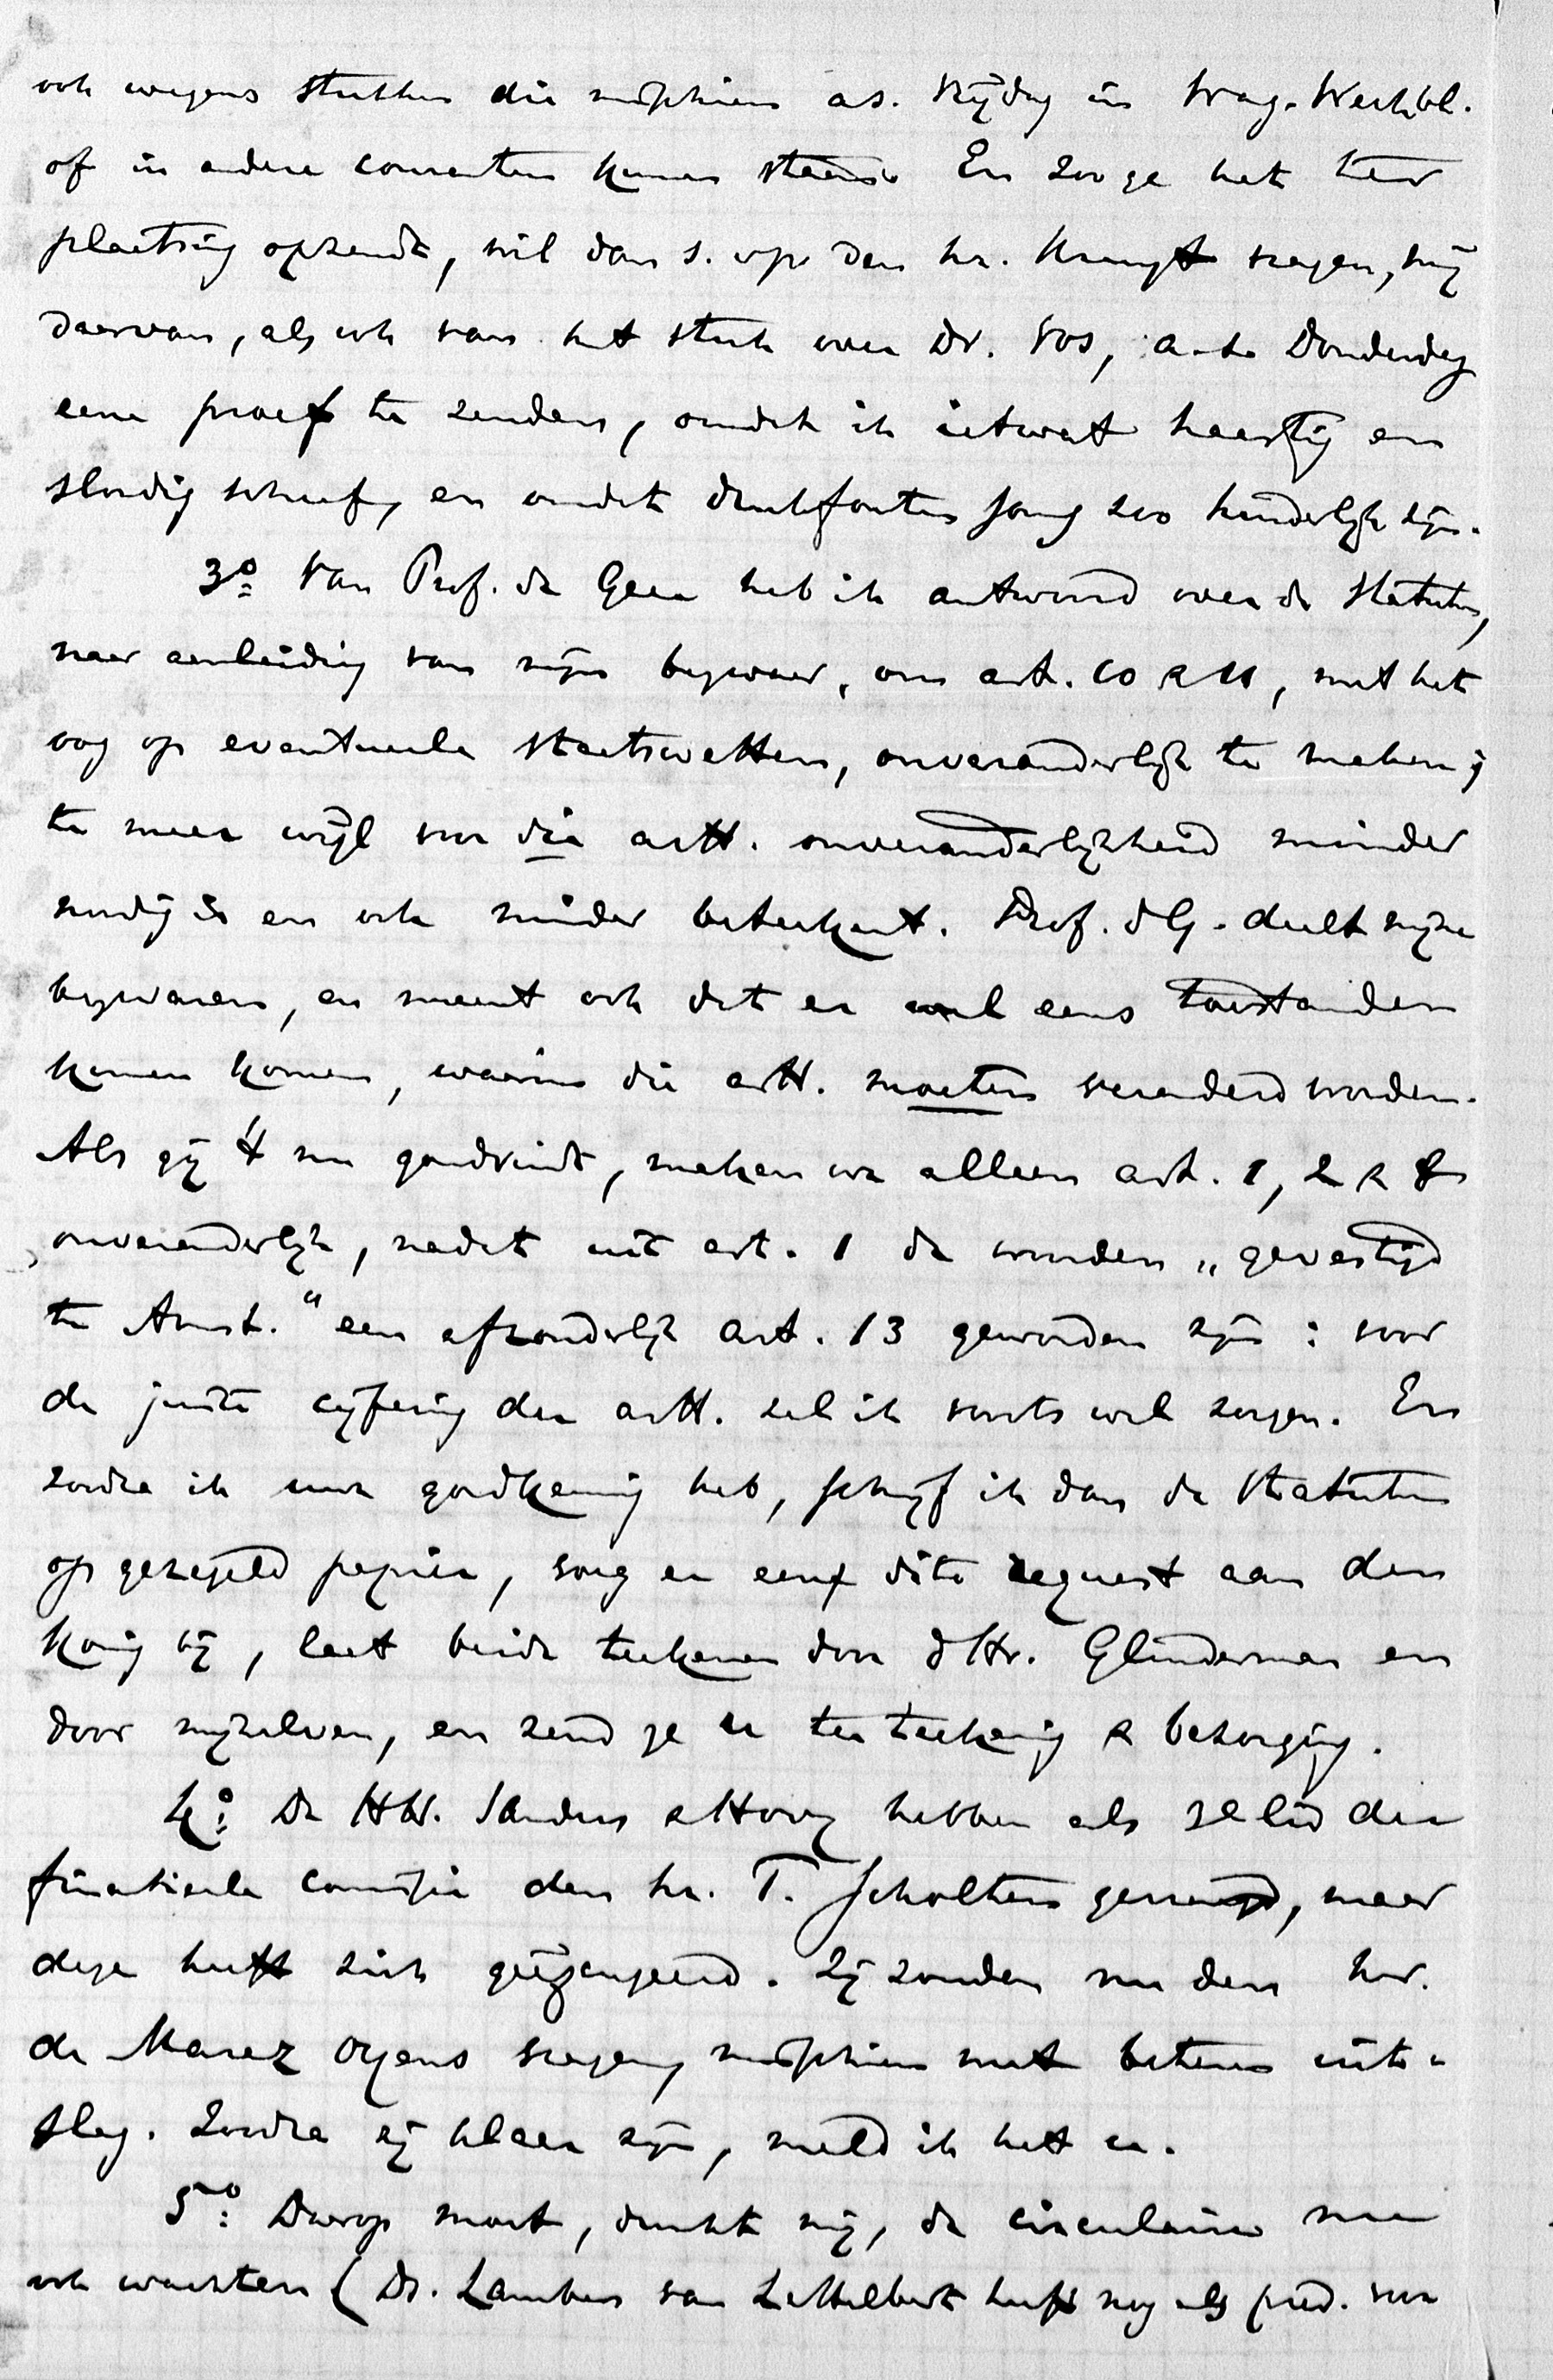 ook wegens stukken die misschien a.s. Vrijdag in Wag. Weekbl.
of in andere couranten kunnen staan. En zoo ge het ter
plaatsing opzendt, wil dan s. v. p. den hr. Kruyt vragen, mij
daarvan, als ook van het stuk over Dr. Vos, a.s. Donderdag
eene proef te zenden, omdat ik ietwat haastig en
slordig schreef, en omdat drukfouten soms zoo hinderlijk zijn.
3º Van Prof. de Geer heb ik antwoord over de Statuten,
naar aanleiding van mijn bezwaar, om art. 10 & 11, met het
oog op eventueele staatswetten, onveranderlijk te maken;
te meer wijl voor die artt. onveranderlijkheid minder
noodig is en ook minder beteekent. Prof. dG. deelt mijne
bezwaren, en meent ook dat er wel eens toestanden
kunnen komen, waarin die artt. moeten veranderd worden.
Als gij 't nu goedvindt, maken we alleen art. 1, 2 & 8
onveranderlijk, nadat uit art. 1 de woorden „gevestigd
te Amst.“ een afzonderlijk art. 13 geworden zijn: voor
de juiste cijfering der artt. zal ik voorts wel zorgen. En
zoodra ik uwe goedkeuring heb, schrijf ik dan de Statuten
op gezegeld papier, voeg er een dito request aan den
Koning bij, laat beide teekenen door dHr. Glinderman en
door mijzelven, en zend ze u ter teekening & bezorging.
4º: De HH. Sanders & Hovy hebben als 3e lid der
financieele commissie den hr. T. Scholten gevraagd, maar
deze heeft zich geëxcuseerd. Zij zouden nu den hr.
de Marez Oyens vragen, misschien met beteren uit-
slag. Zoodra zij klaar zijn, meld ik het u.
5º: Daarop moet, dunkt mij, de circulaire nu
ook wachten (Ds. Lambers van Lettelbert heeft nog als pred. voor